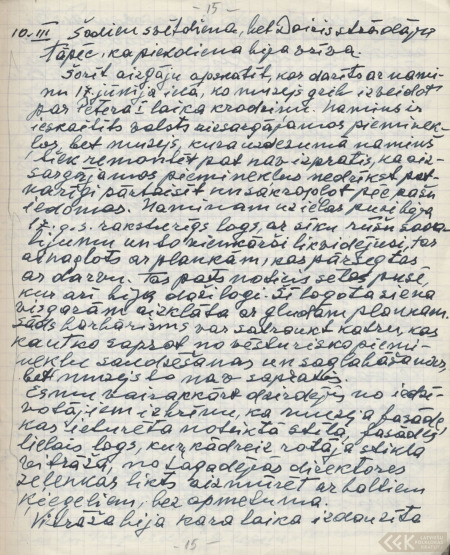 - 15 -
10.III Šodien svētdiena, bet Dainis strādājis
tāpēc, ka piekdiena bija brīva.
Šorīt aizgāju apskatīt, kas darīts ar nami-
ņu 17. jūnija ielā, ko muzejs grib izveidot
par ietērā laika krodziņu. Namiņš ir
ieskaitīts valsts aizsargājamos piemiņek-
ļos, bet muzejs, kura uzdevumā namiņš
tiek remontēt pat nav izpratis, ka aiz-
sargājamos pieminekļus nedrīkst pat-
vaļīgi pārtaisīt un sakropļot pēc pašu
iedomas. Namiņam uz ielas pusi bija
17. g. s. raksturīgs logs, ar sīku rūšu sada-
lījumu un to vienkārši likvidējuši, tas
aiznaglots ar plankām, kas pārsegtas
ar darvu. Tas pats noticis sētas pusē,
kur arī bija daži logi. Šī logotā siena
visgaram aizklāta ar gludām plankām.
Šāds barbarisms var satraukt katru, kas
kaut ko saprot no vēsturisko piemi-
nekļu saudzēšanas un saglabāšanas,
bet muzejs to nav sapratis.
Esmu vairākkārt dzirdējis no iedzī-
votājiem izbrīnu, ka muzeja fasādē,
kas ieturēta noteiktā stilā, fasādes
lielais logs, kur kādreiz rotāja stikla
vitrāža, no tagadējās direktores
Zeļenkas likts aizmūrēt ar baltiem
ķieģeļiem, bez apmetuma.
Vitrāža bija kara laikā izdauzīta
- 15 -